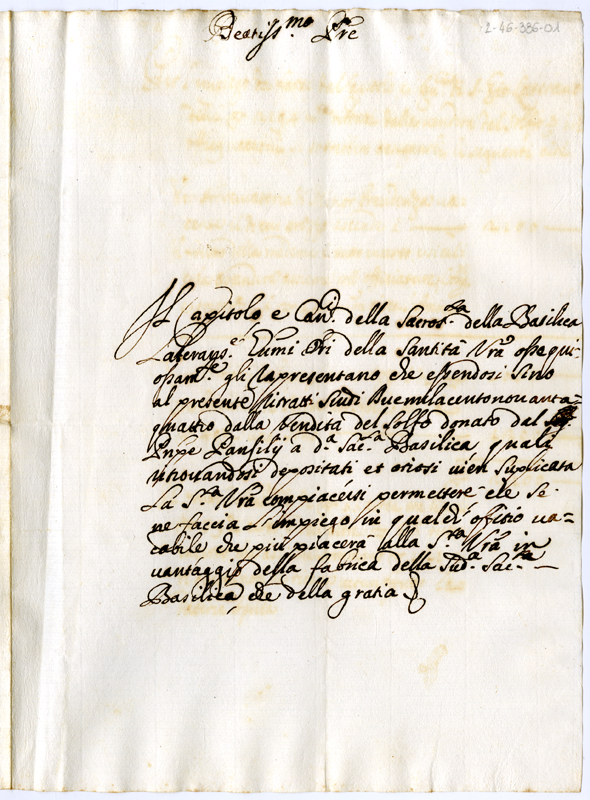 Beatiss.mo Pre
2-46-386-01
Il Capitolo e Can.i della Sacros.ta della Basilica
Lateran.e Humi Ori della Santità Vra osequi-
osam.te gli rapresentano che essendosi sino
al presente ritratti scudi duemilacentonouanta=
quattro dalla vendita del solfo donato dal
Pnpe Panfilij a d.a Sac.a Basilica quali
ritrouandosi depositati et otiosi uien suplicata
la S.tà Vra compiacersi permettere che se
ne faccia l'impiego in qualch' offitio ua=
cabile che più piacerà alla S.tà Vra in
uantaggio della fabrica della sud.a Sac.ta
Basilica, che della gratia